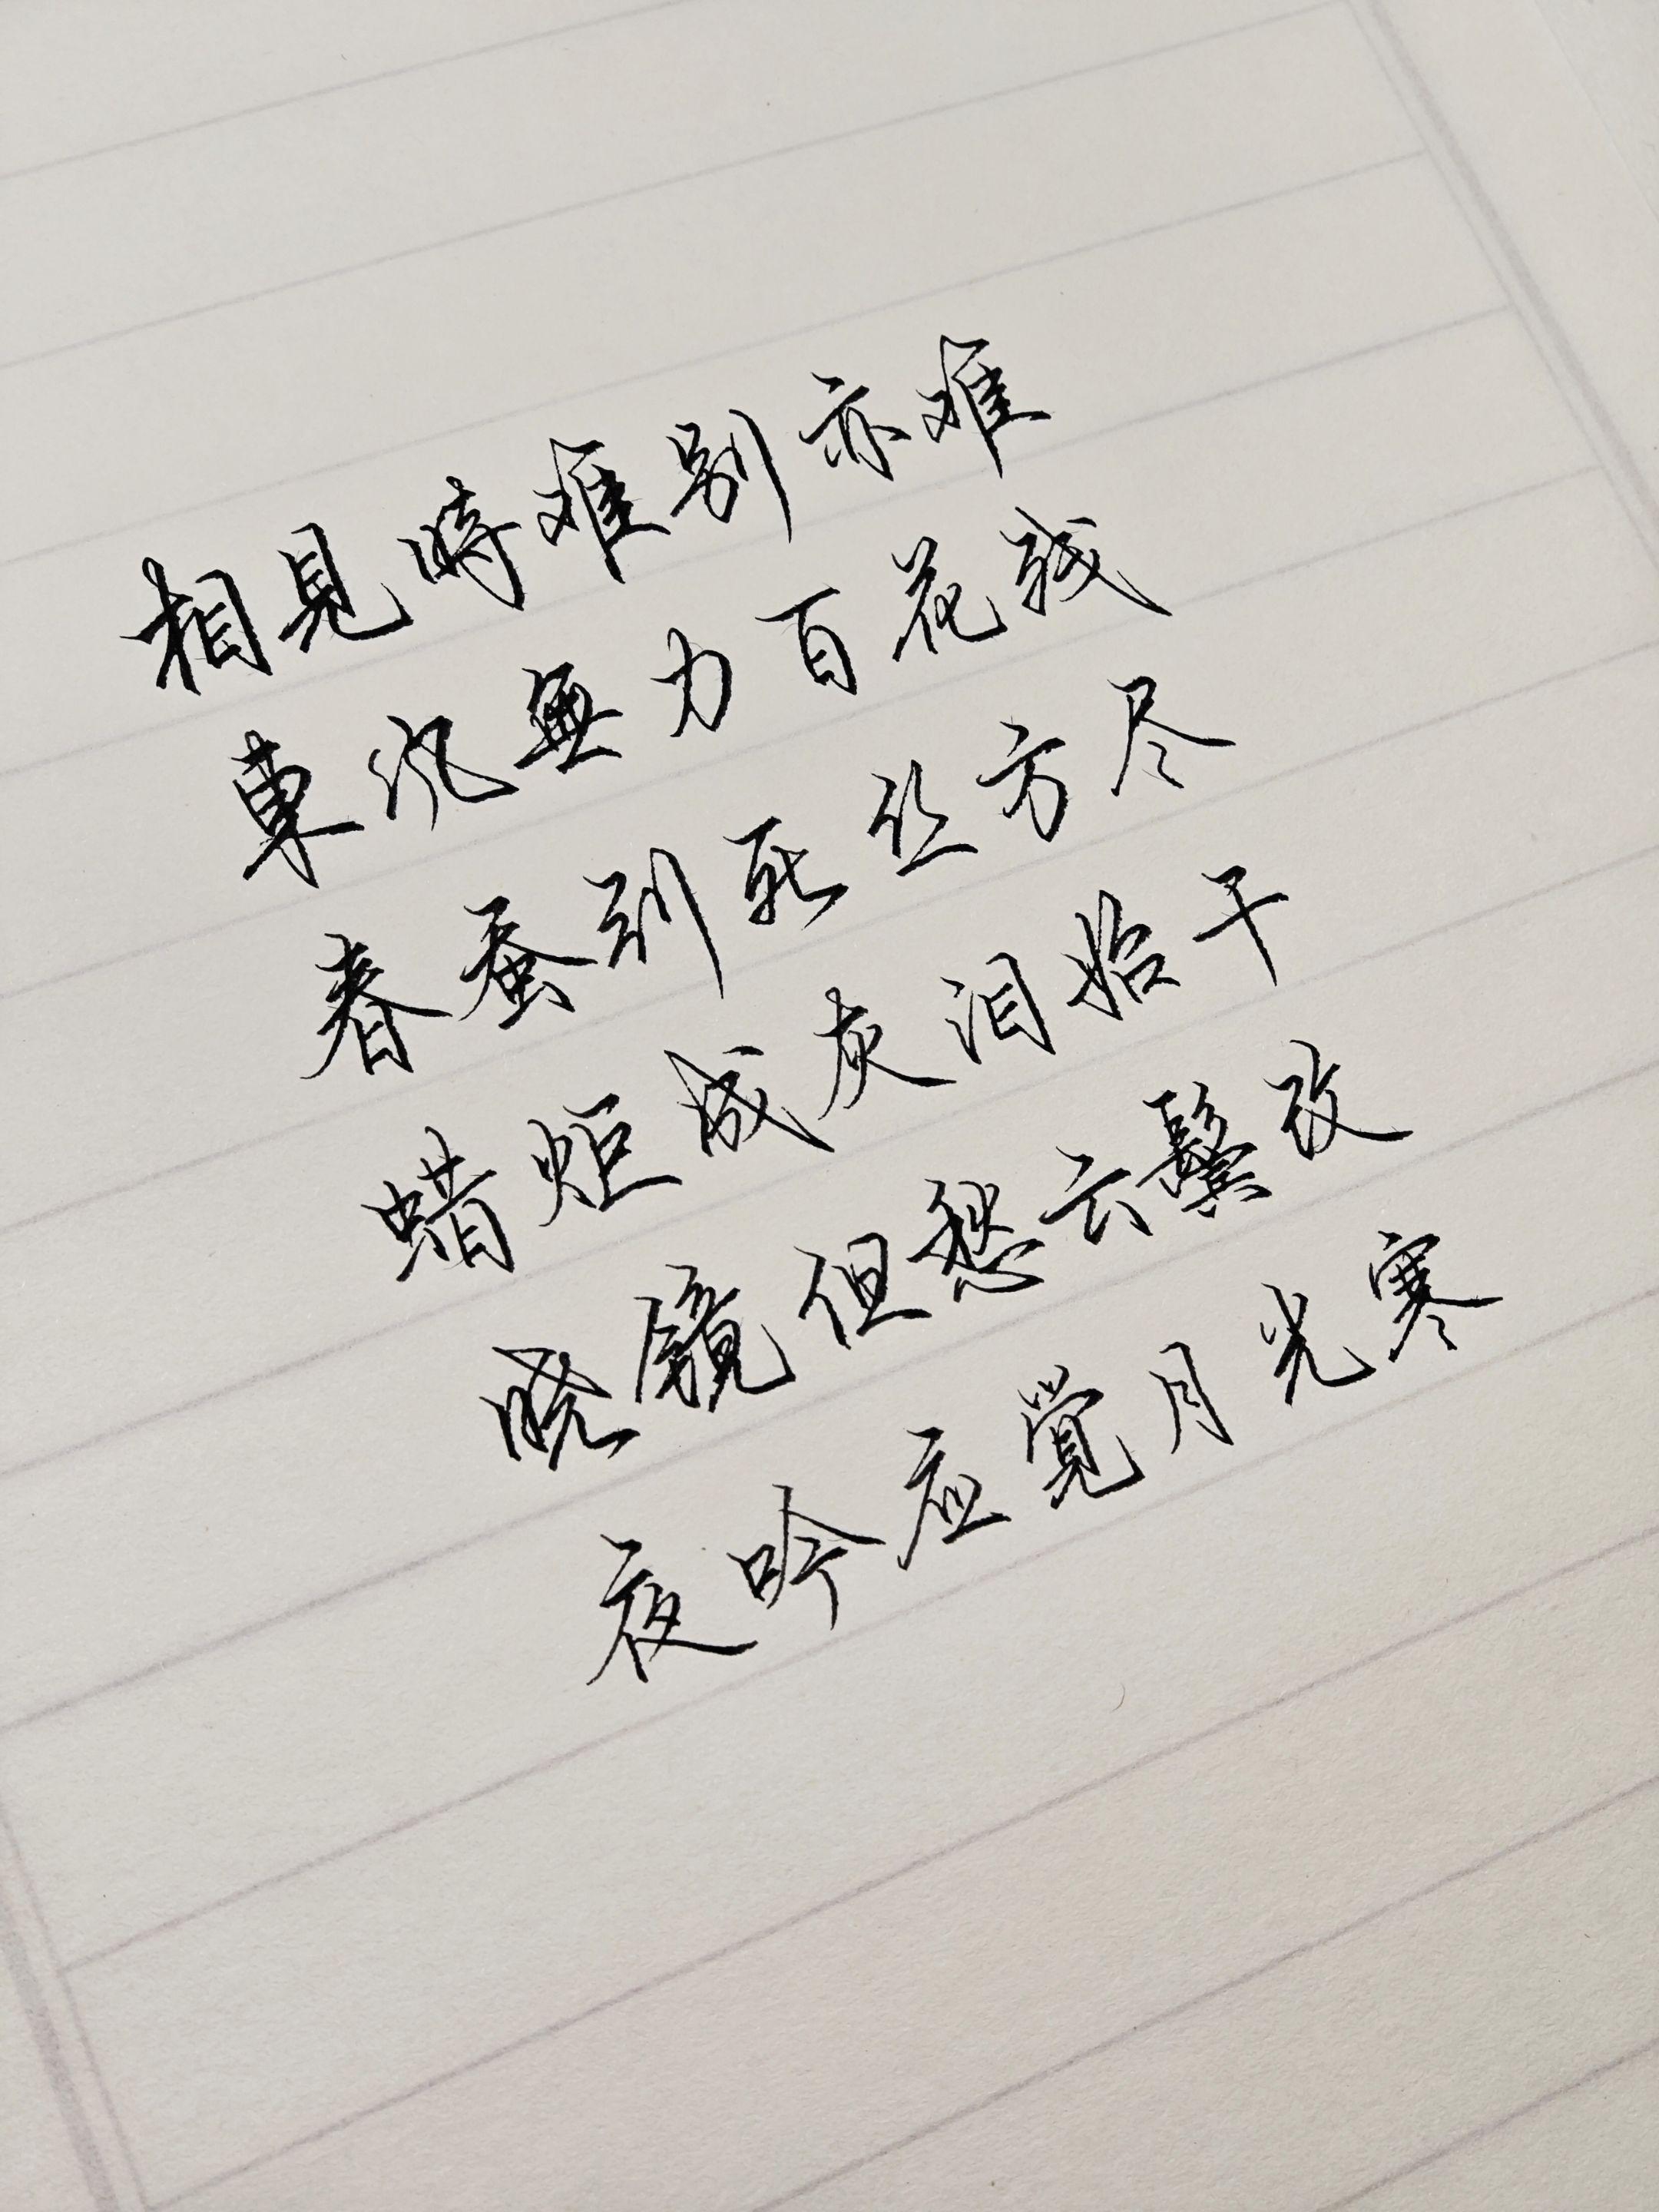 相見時难别亦难
東风無力百花残
春蚕到死丝方尽
蜡炬成灰泪始干
晓镜但愁云鬓改
夜吟应覚月光寒